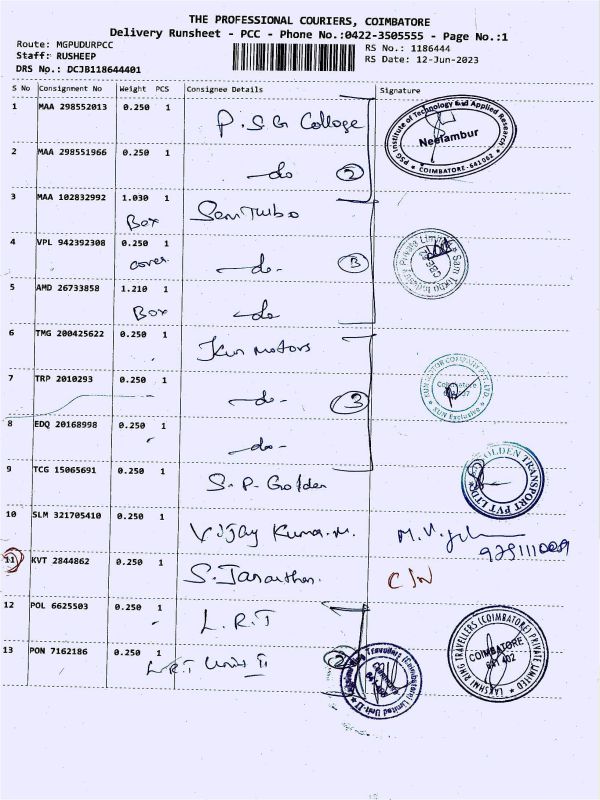 THE PROFESSIONAL COURIERS, COIMBATORE
Delivery Runsheet - PCC - Phone No.:0422-3505555 - Page No.:1
Route: MGPUDURPCC
Staff: RUSHEEP
DRS No.: DCJB118644401
RS No.: 1186444
RS Date: 12-Jun-2023
S No Consignment No Weight PCS Consignee Details Signature
1 MAA 298552013 0.250 1 P.S.G College
PSG Institute of Technology and Applied Research
Neelambur
COIMBATORE-641062
2 MAA 298551966 0.250 1 -do- 2
3 MAA 102832992 1.030 1
Box
4 VPL 942392308 0.250 1 -do- 3
cover
5 AMD 26733858 1.210 1 -do-
Box
6 TMG 200425622 0.250 1 Motors
7 TRP 2010293 0.250 1 -do- 3
8 EDQ 20168998 0.250 1 -do-
9 TCG 15065691 0.250 1 S.P. Golden
GOLDEN TRANSPORT PVT LTD
10 SLM 321705410 0.250 1 Vijay Kumar.M.
11 KVT 2844862 0.250 1 S.
12 POL 6625503 0.250 1 L.R.T
LAKSHMI RING TRAVELLERS (COIMBATORE) PRIVATE LIMITED
COIMBATORE
641 402
13 PON 7162186 0.250 1 L.R.T Unit II 2